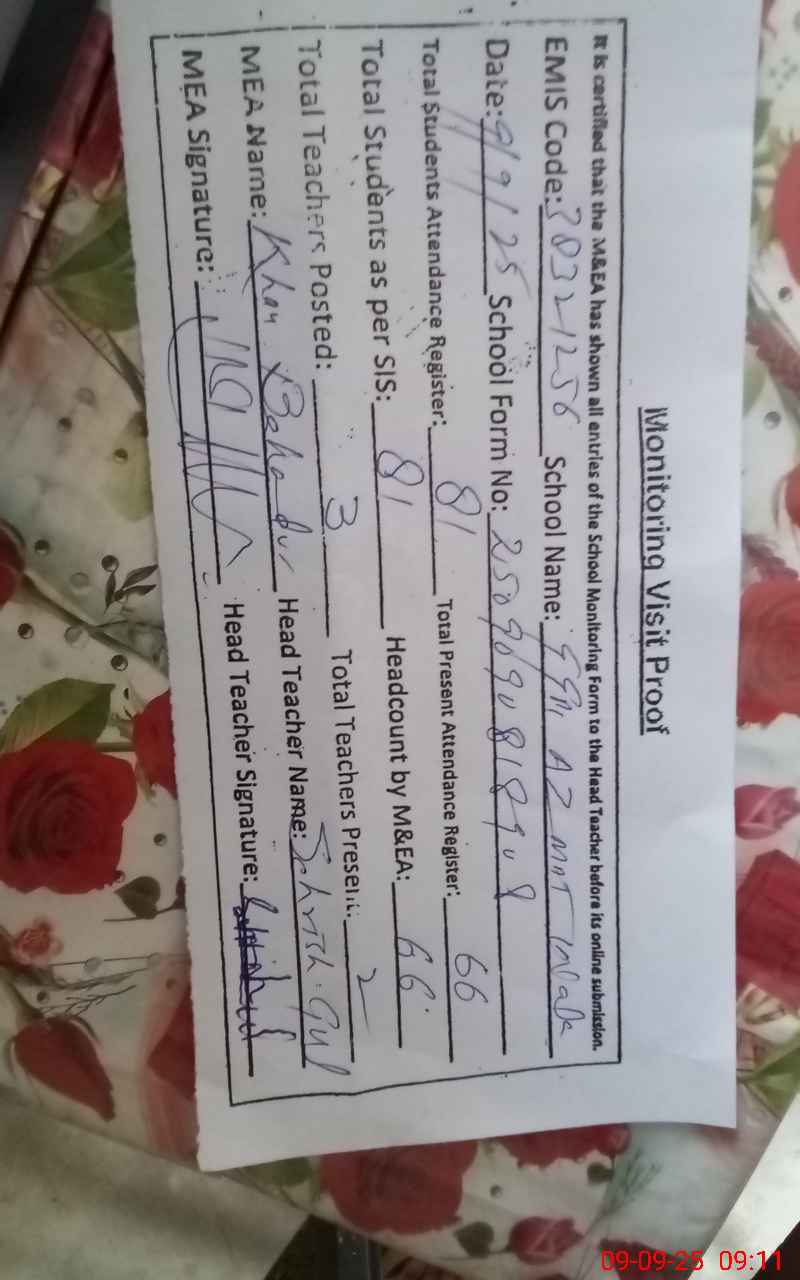 Monitoring Visit Proof
It is certified that the M&EA has shown all entries of the School Monitoring Form to the Head Teacher before its online submission.
EMIS Code: 38321256 School Name: AZMAT
Date: 9/9/25 School Form No:
Total Students Attendance Register: 81 Total Present Attendance Register: 66
Total Students as per SIS: 81 Headcount by M&EA: 66
Total Teachers Posted: 3 Total Teachers Present: 2
MEA Name: Khan Bahadur Head Teacher Name: Sehrish Gul
MEA Signature: Head Teacher Signature:
09-09-25 09:11